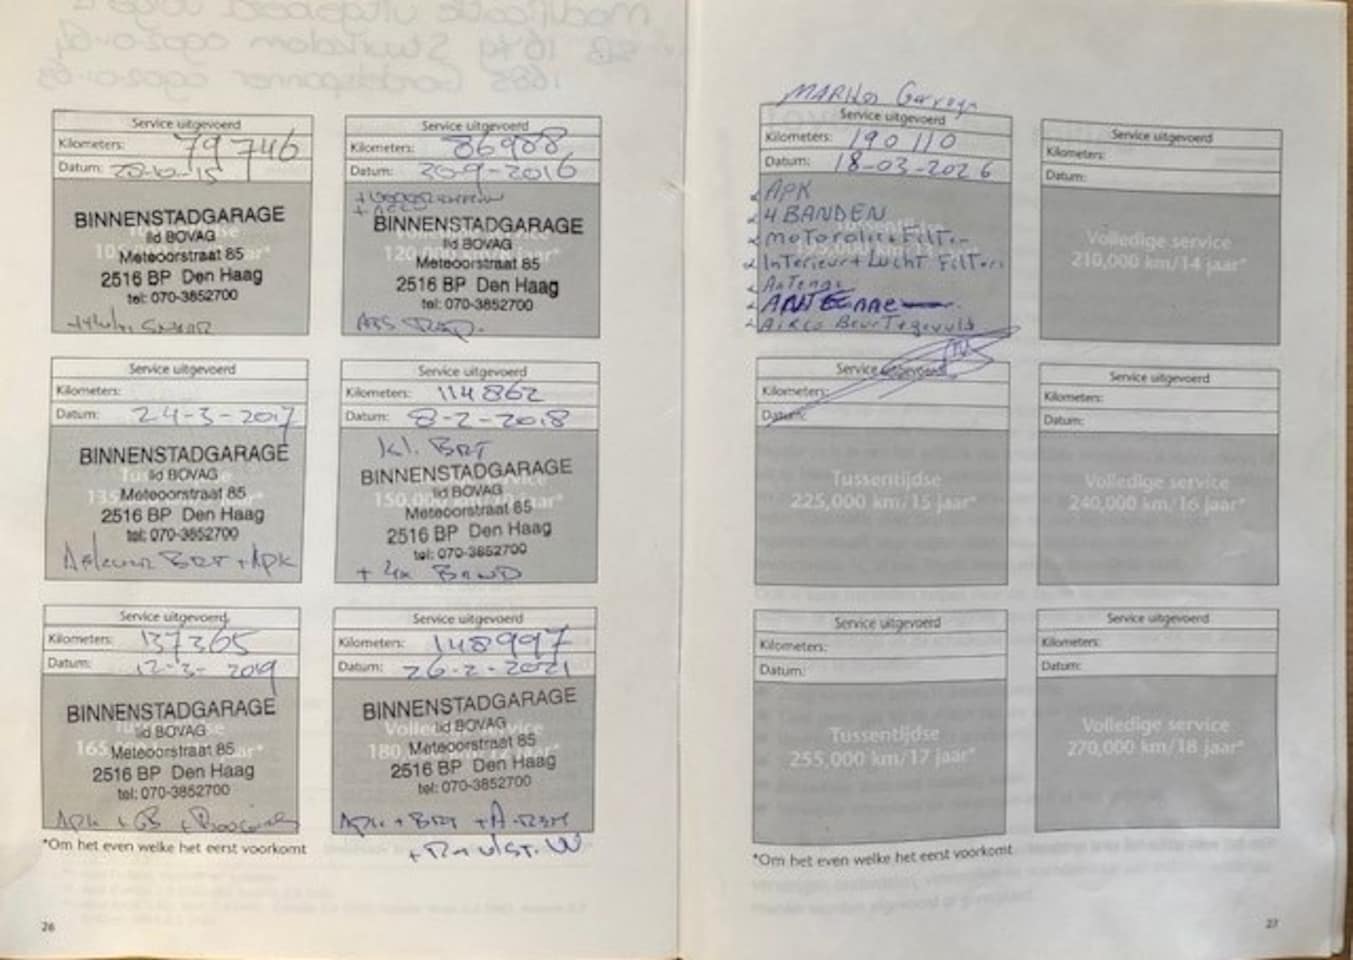 Service uitgevoerd
Kilometers: 79746
Datum: 20-10-15
BINNENSTADGARAGE
lid BOVAG
Meteoorstraat 85
2516 BP Den Haag
tel: 070-3852700
Service uitgevoerd
Kilometers: 86988
Datum: 20-9-2016
BINNENSTADGARAGE
lid BOVAG
120,000 km
Meteoorstraat 85
2516 BP Den Haag
tel: 070-3852700
ABS
Service uitgevoerd
Kilometers:
Datum: 24-3-2017
BINNENSTADGARAGE
lid BOVAG
Meteoorstraat 85
2516 BP Den Haag
tel: 070-3852700
BRT + APK
Service uitgevoerd
Kilometers: 114862
Datum: 8-2-2018
kl. BRT
BINNENSTADGARAGE
lid BOVAG
Meteoorstraat 85
2516 BP Den Haag
tel: 070-3852700
+ 4x BAND
Service uitgevoerd
Kilometers: 137365
Datum: 12-3-2019
BINNENSTADGARAGE
lid BOVAG
Meteoorstraat 85
2516 BP Den Haag
tel: 070-3852700
APK + GB +
Service uitgevoerd
Kilometers: 148997
Datum: 26-2-2021
BINNENSTADGARAGE
lid BOVAG
Meteoorstraat 85
2516 BP Den Haag
tel: 070-3852700
APK + BRT +
*Om het even welke het eerst voorkomt
26
Service uitgevoerd
Kilometers: 190110
Datum: 18-03-2026
APK
4 BANDEN
Motorolie + Filter
Interieur + Lucht Filter
Antenne
Airco Beurt gevuld
Service uitgevoerd
Kilometers:
Datum:
Volledige service
210,000 km/14 jaar*
Service uitgevoerd
Kilometers:
Datum:
Tussentijdse
225,000 km/15 jaar*
Service uitgevoerd
Kilometers:
Datum:
Volledige service
240,000 km/16 jaar*
Service uitgevoerd
Kilometers:
Datum:
Tussentijdse
255,000 km/17 jaar*
Service uitgevoerd
Kilometers:
Datum:
Volledige service
270,000 km/18 jaar*
*Om het even welke het eerst voorkomt
27